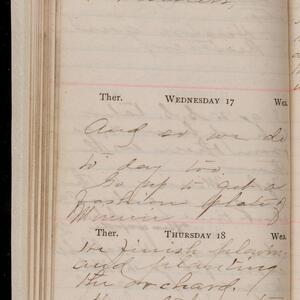 Ther. WEDNESDAY 17 Wea.
And so we do
to day too.
Go up to get a
fashion plate of
Ther. THURSDAY 18 Wea.
We finish plowing
and planting
the orchard. I